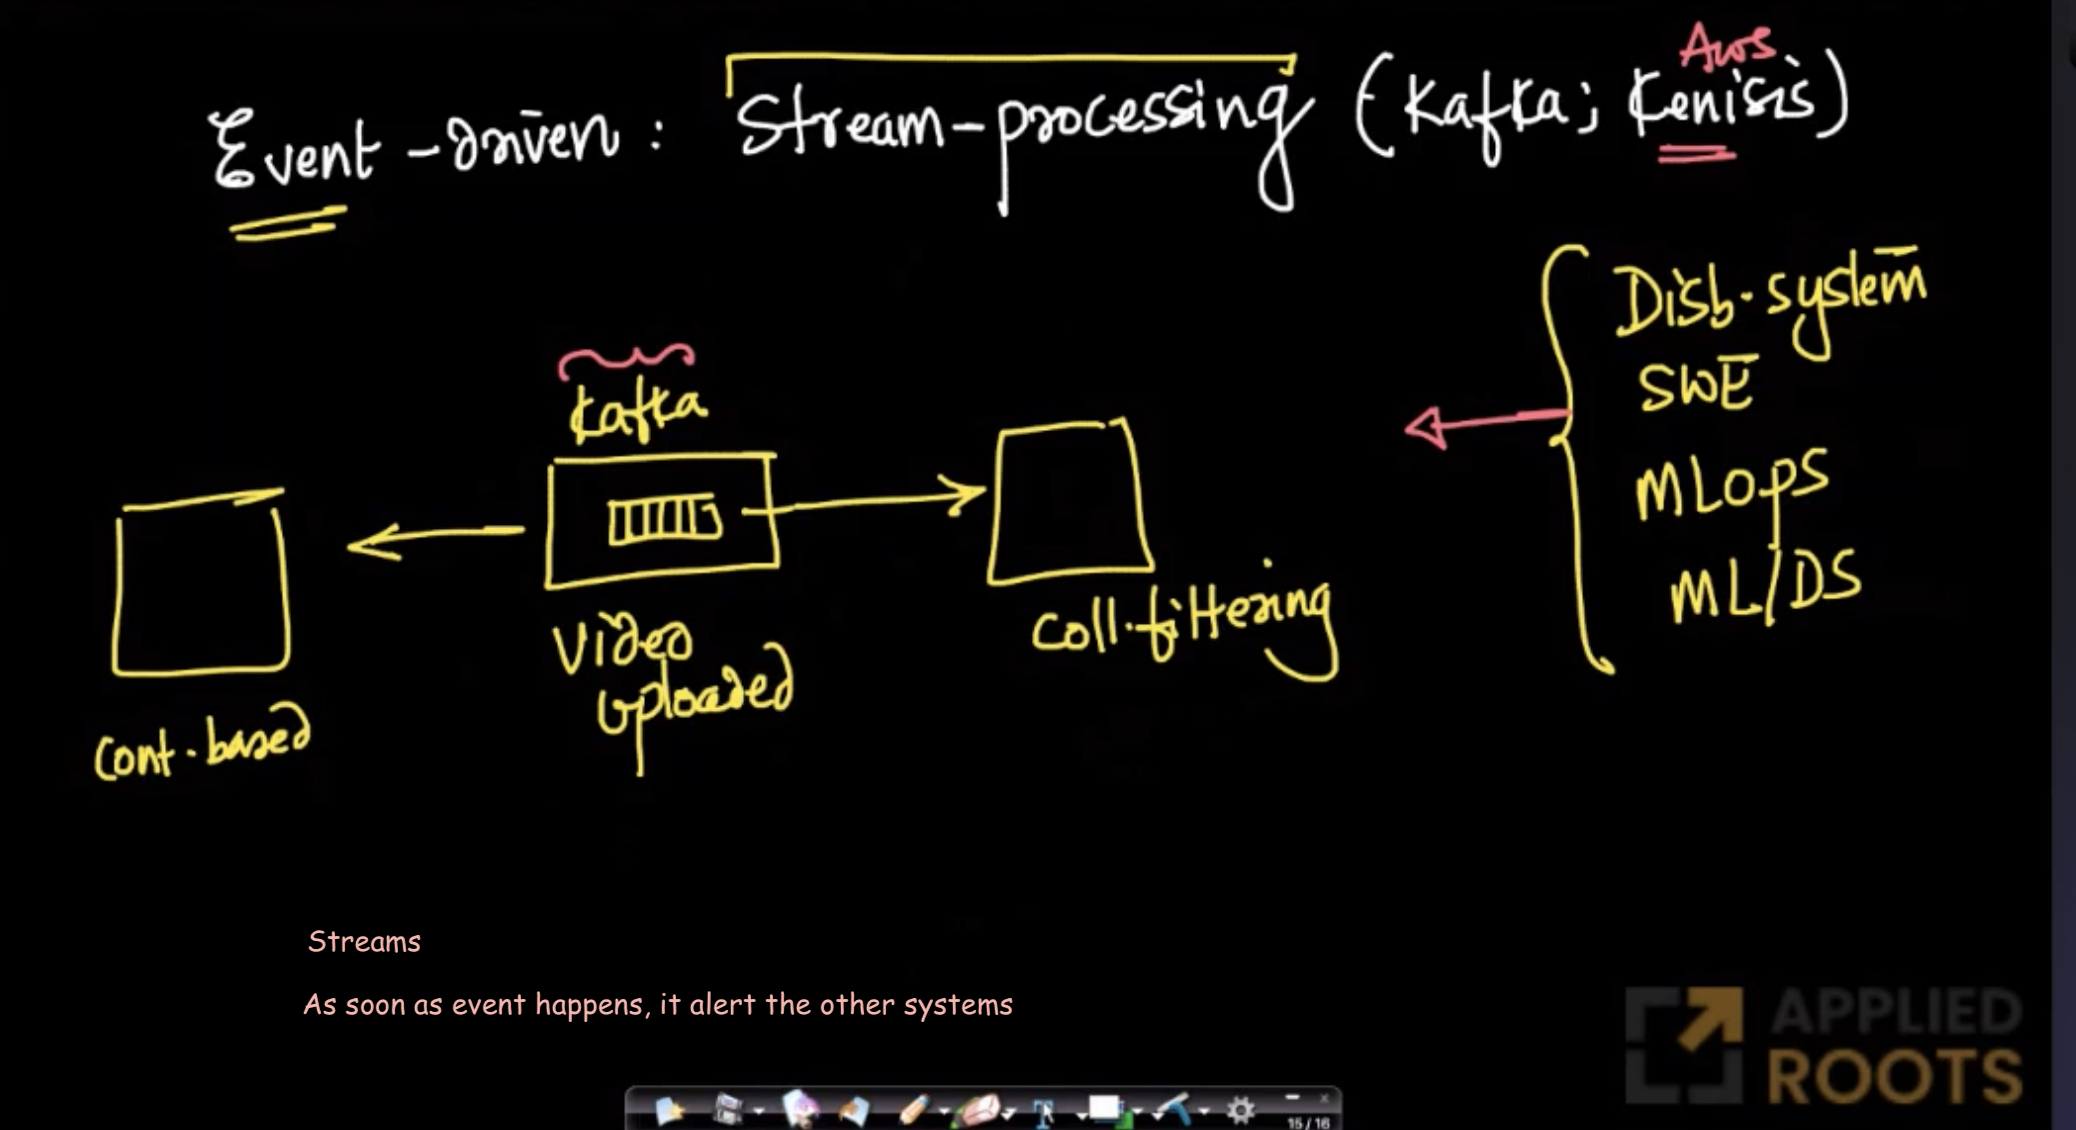 Aws
Event-driven: Stream-processing (Kafka; Kenisis)
Disb.system
SWE
MLOps
ML/DS
Kafka
Video
uploaded
Coll.filtering
Cont.based
Streams
As soon as event happens, it alert the other systems
APPLIED
ROOTS
15/16